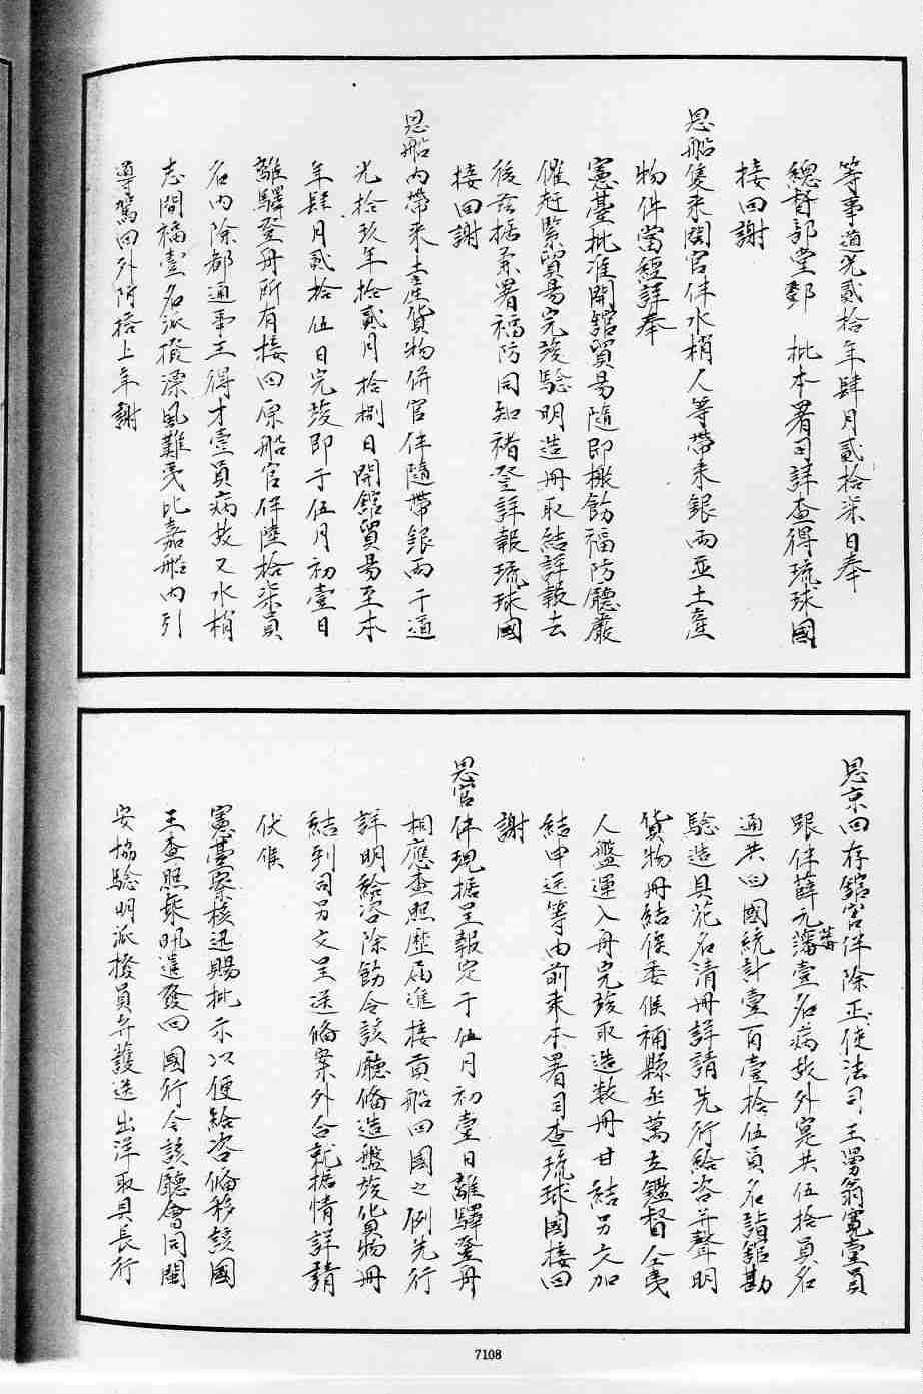 等事道光貳拾年肆月貳拾柒日奉
總督部堂鄧　批本署司詳查得琉球國
接回謝
恩船隻來閩官伴水梢人等帶來銀兩並土產
物件當經詳奉
憲臺批准開館貿易隨即檄飭福防廳嚴
催赶緊貿易完竣驗明造冊取結詳報去
後茲據兼署福防同知褚登詳報琉球國
接回謝
恩船內帶來土產貨物併官伴隨帶銀兩于道
光拾玖年拾貳月拾捌日開館貿易至本
年肆月貳拾伍日完竣即于伍月初壹日
離驛登舟所有接回原船官伴陸拾柒員
名內除都通事王得才壹員病故又水梢
志間福壹名派撥漂風難夷比嘉船內引
導駕回外附搭上年謝
恩京回存舘官伴除正使法司王舅翁寬壹員
跟伴薛元藩壹名病故外寔共伍拾員名
通共回國統計壹百壹拾伍員名詣舘勘
驗造具花名清冊詳請先行給咨並聲明
貨物冊結俟委候補縣丞萬立鑑督仝夷
人盤運入舟完竣取造裝冊甘結另文加
結申送等由前來本署司查琉球國接回
謝
恩官伴現據呈報定于伍月初壹日離驛登舟
相應查照歷屆進接貢船回國之例先行
詳明給咨除飭令該廳俻造盤竣貨物冊
結到司另文呈送俻案外合就據情詳請
伏候
憲臺察核迅賜批示以便給咨俻移該國
王查照乘汛遣發回國行令該廳會同閩
安協驗明派撥員弁護送出洋取具長行
7108